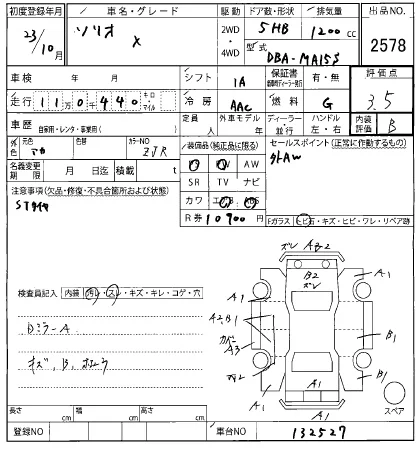 初度登録年月 車名・グレード 駆動 ドア数・形状 排気量 出品NO.
23/10月 ソリオ X 2WD ・ 4WD 5HB 1200 cc 2578
型式 DBA-MA15S
車検 年 月 シフト 1A 保証書 有・無 評価点
走行 110440 キロ・マイル 冷房 AAC 燃料 G 3.5
車歴 自家用・レンタ・事業用( ) 定員 人 外車モデル 年 ディーラー・並行 ハンドル 左・右 内装評価 B
外色 元色 色替 カラーNO ZJR 装備品(純正品に限る) セールスポイント(正常に作動するもの)
AW 外AW
名義変更期限 月 日迄 積載 t SR TV ナビ
注意事項(欠品・修復・不具合箇所および状態) カワ エアB ABS
R券 10900円 Fガラス ヒビ石・キズ・ヒビ・ワレ・リペア跡
ズレ A2-2
B2
ズレ
A1 A1
A2,B1
カバー
A3
B1
B1
A1 A1
A1
スペア
検査員記入 内装 汚レ・スレ・キズ・キレ・コゲ・穴
Dミラー A
キズ、B、
長さ cm 幅 cm 高さ cm
登録NO 車台NO 132527